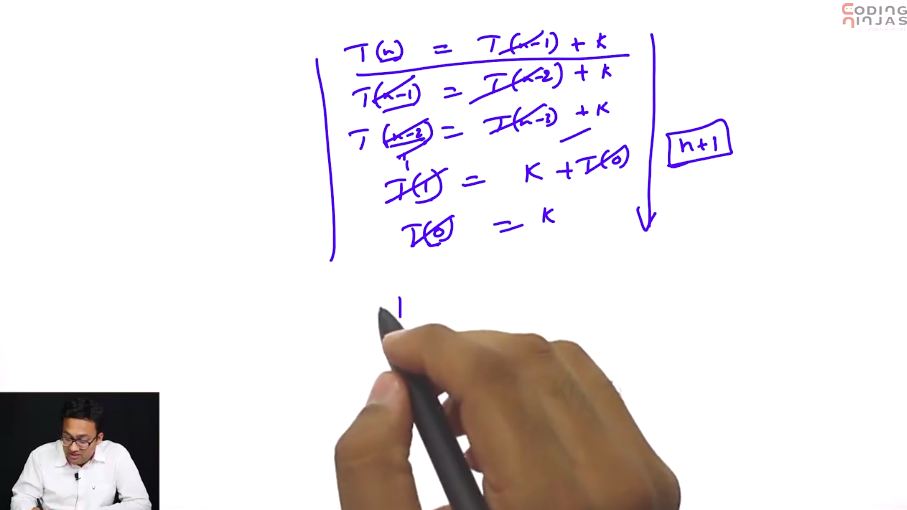 CODING
NINJAS
T(n) = T(n-1) + K
T(n-1) = T(n-2) + K
T(n-2) = T(n-3) + K
n+1
T(1) = K + T(0)
T(0) = K